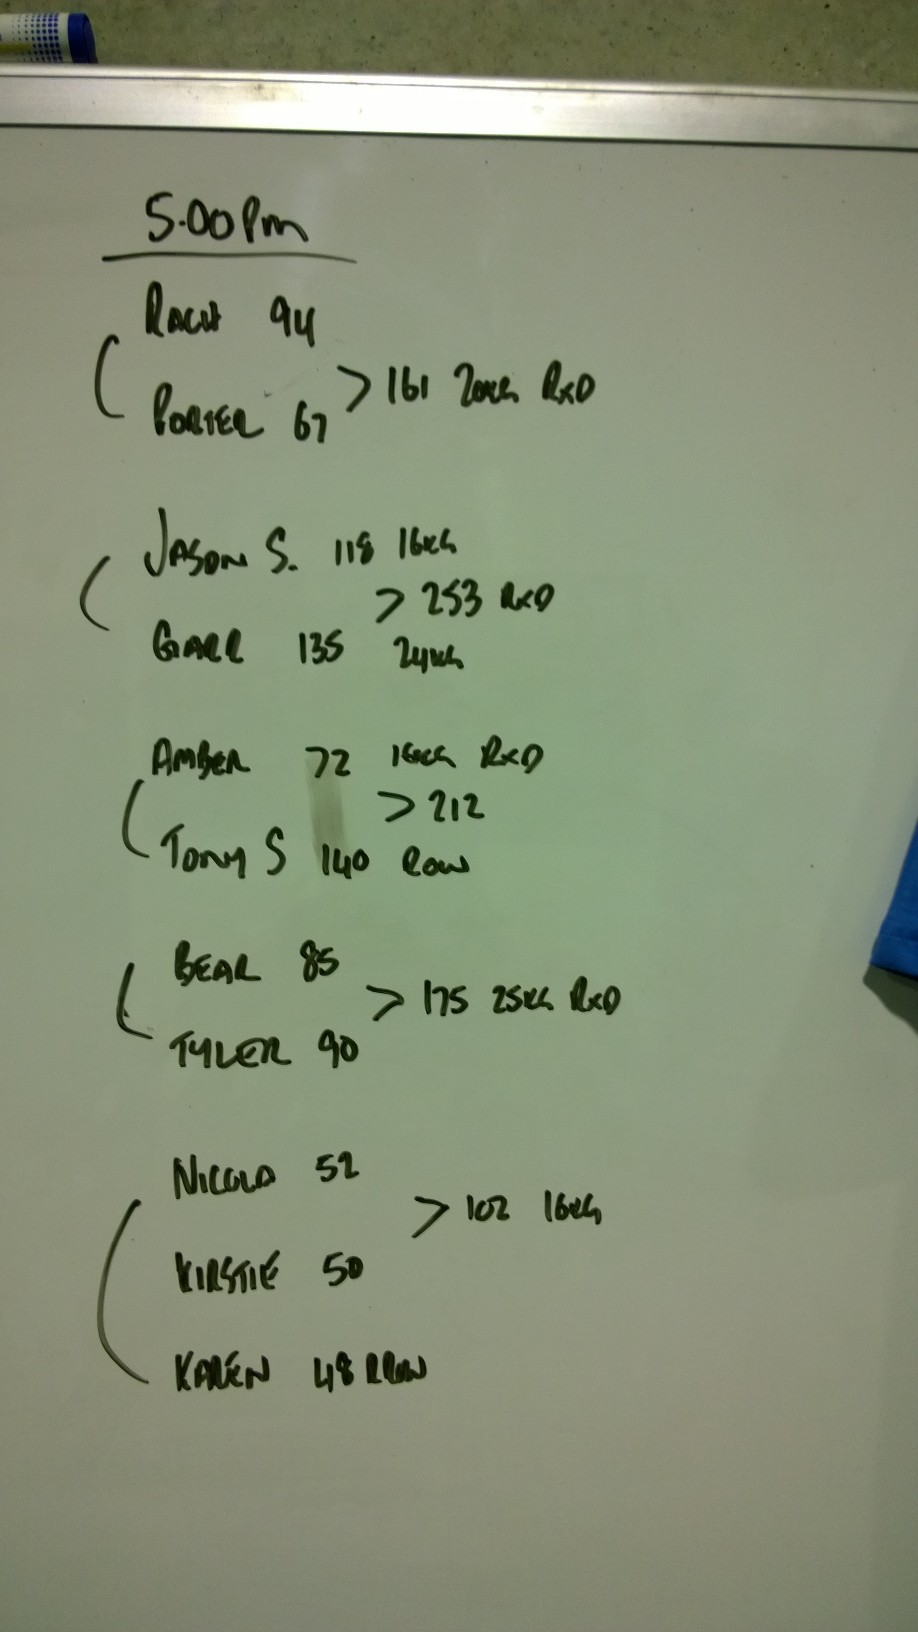 5.00Pm
RACH 94
> 161 20KG RXD
PORTER 67
JASON S. 118 16KG
> 253 RXD
GARR 135 24KG
AMBER 72 16KG RXD
> 212
TONY S 140 ROW
BEAR 85
> 175 25KG RXD
TYLER 90
NICOLA 52
> 102 16KG
KIRSTIE 50
KAREN 48 ROW